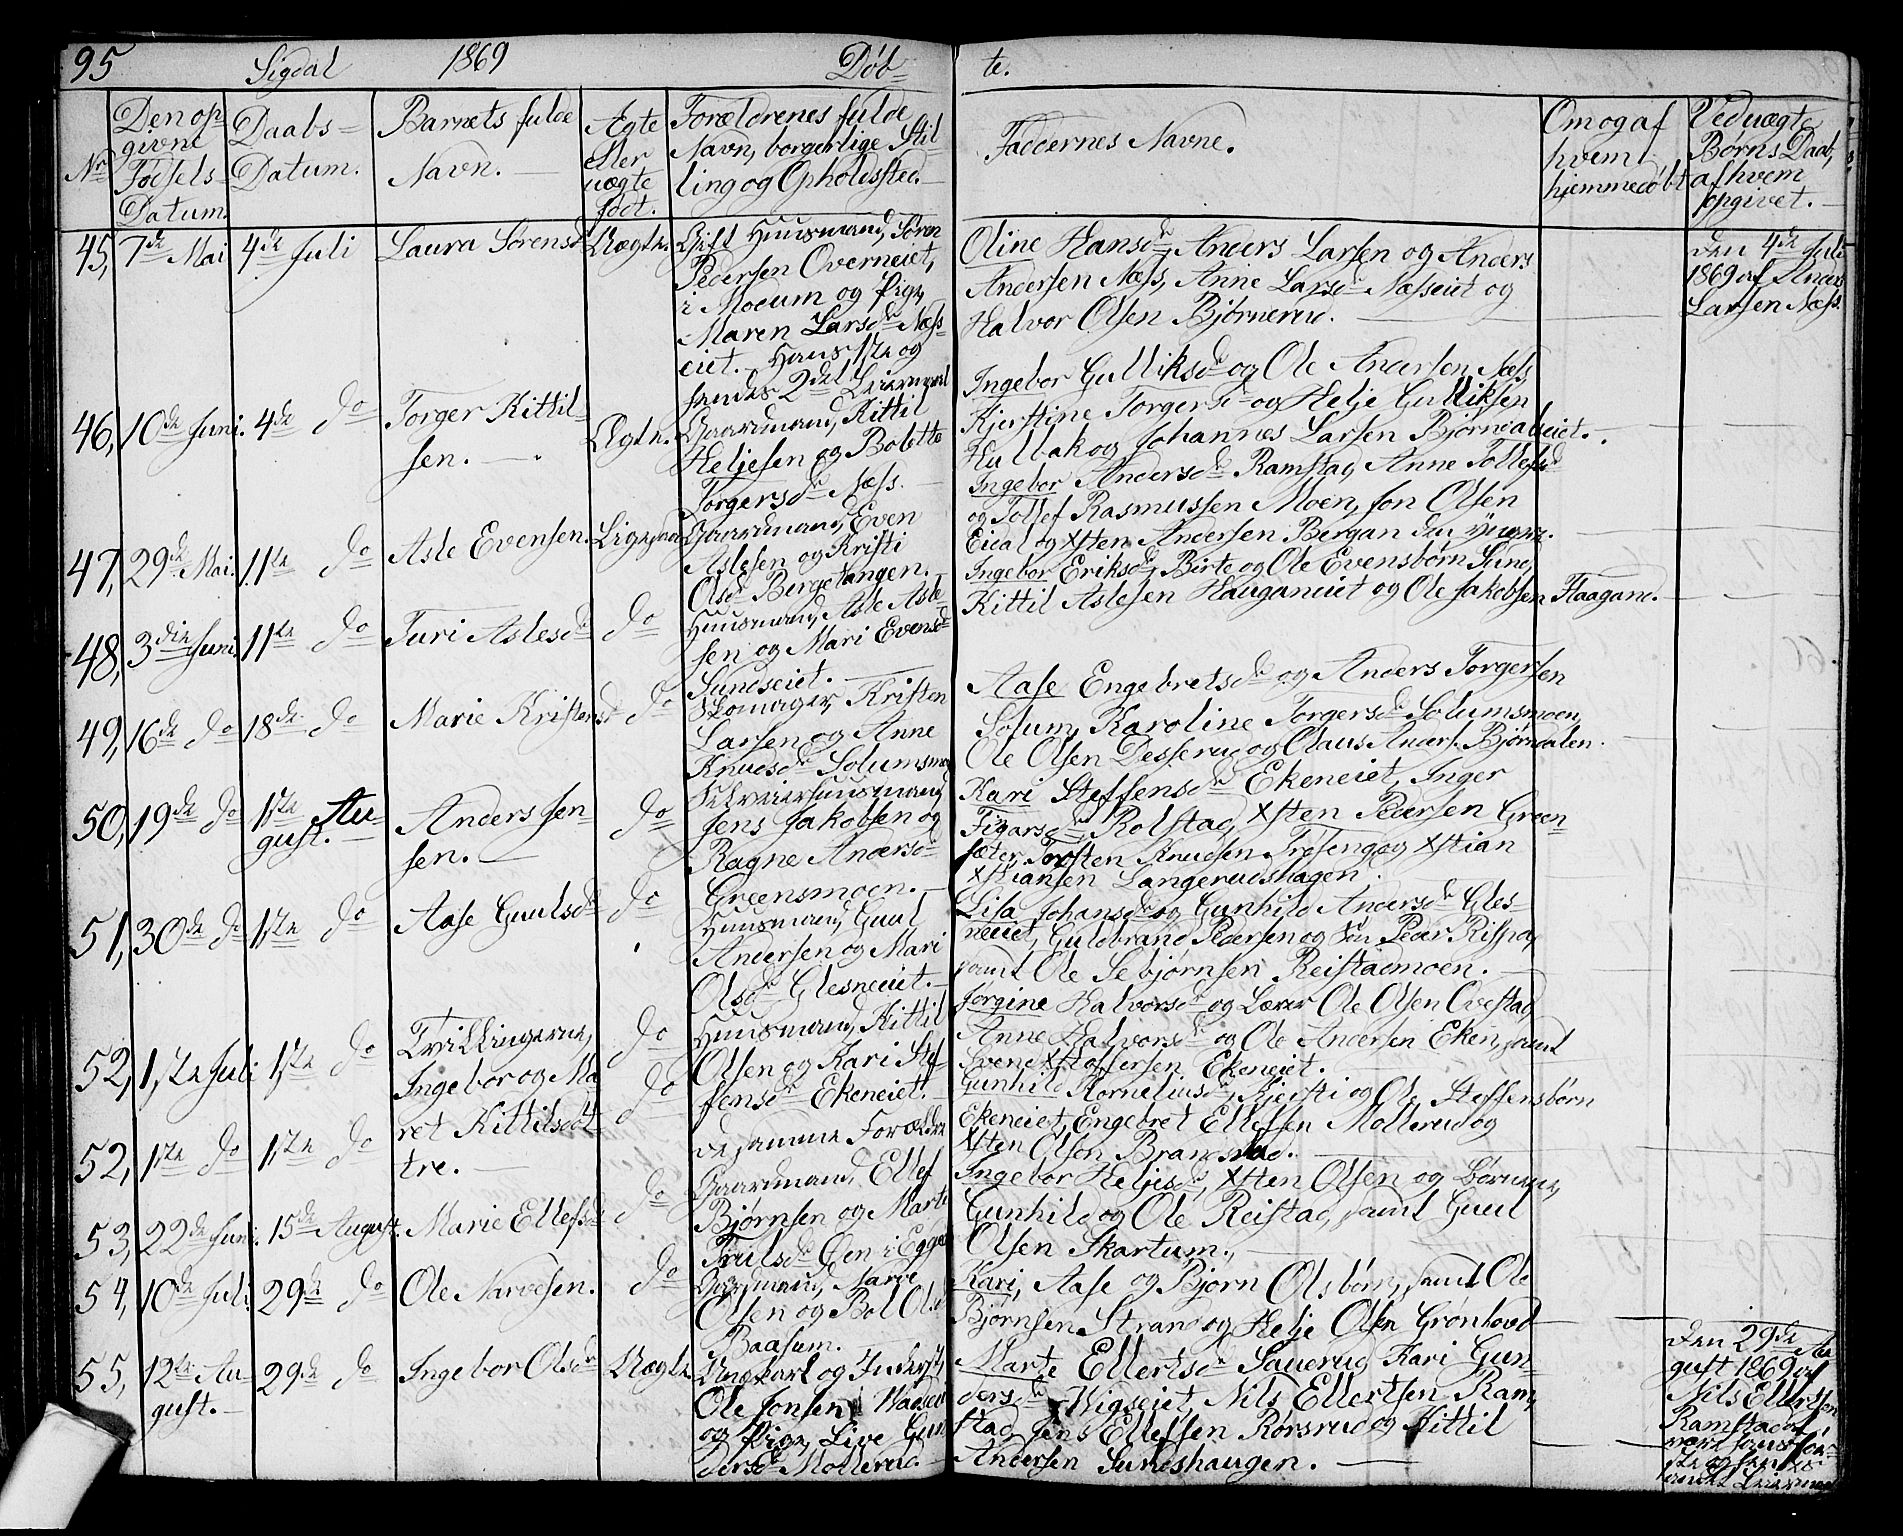 95 Sigdal 1869 Døb= te.
Nr.
Den op
givne
Fødsels
Datum.
Daabs=
Datum.
Barnets fulde
Navn.
Ægte
eller
uægte
født.
Forældrenes fulde
Navn, borgerlige Stil
ling og Opholdssted.
Faddernes Navne.
Om og af
hvem
hjemmedøbt
Ved uægte
Børns Daab,
af hvem
opgivet.
45, 7de Mai 4de Juli Laura Sørensd Uægte.
Gift Huusmand, Søren
Pedersen Overneiet,
i Modum og Pige,
Maren Larsd. Næss
eiet. Hans 1ste og
hendes 2det Leiermaal
Oline Hansd, Anders Larsen og Anders
Andersen Næss, Anne Larsd. Næsseiet og
Halvor Olsen Bjørnerud.
den 4de Juli
1869 af Anders
Larsen Næss.
46, 10de Juni. 4de do Torger Kittil
sen. Ægte.
Gaardmand, Kittil
Heljesen og Bolette
Torgersd. Næss.
Ingebor Gulliksd. og Ole Andersen Næss,
Kjerstine Torgersd. og Helje Gulliksen
Hulbak og Johannes Larsen Bjørndaleiet.
47, 29de Mai. 11te do Asle Evensen. Ligesaa
Gaardmand, Even
Aslesen og Kristi
Olsd. Bergetangen.
Ingebor Andersd. Ramstad, Anne Tollefsd.
og Tollef Rasmussen Moen, Jon Olsen
Eidal og Xsten Andersen Bergan den yngre.
48, 3die Juni. 11te do Turi Aslesd. do
Huusmand, Asle Asle
sen og Mari Evensd.
Sundseiet.
Ingebor Eriksd, Birte og Ole Evensbørn Sund,
Kittil Aslesen Hauganeiet og Ole Jakobsen Haagane.
49, 16de do 18de do Marie Kristensd do
Skomager, Kristen
Larsen og Anne
Knudsd. Solumsmoe
Aase Engebretsd. og Anders Torgersen
Solum, Karoline Torgersd. Solumsmoen,
Ole Olsen Desserud og Olaus Anders. Bjørndalen.
50, 19de do 1ste Au
gust. Anders Jen
sen. do
Selveierhuusmand,
Jens Jakobsen og
Ragne Andersd.
Greensmoen.
Kari Steffensd. Ekeneiet, Inger
Figarsd. Rolstad, Xsten Pedersen Green
sæter, Torsten Knudsen Trøseng og Xstian
Xstiansen Langerudshagen.
51, 30de do 1ste do Aase Guulsd. do
Huusmand, Guul
Andersen og Mari
Olsd. Glesneeiet.
Lisa Johansd. og Gunhild Andersd. Gles
neeiet, Guldbrand Pedersen og Søn Peder Rispa,
samt Ole Sebjørnsen Reistadmoen.
52, 1ste Juli 1ste do Tvillingerne,
Ingebor og Ma
ret Kittilsdøt
tre. do
do
Huusmand, Kittil
Olsen og Kari Stef
fensd. Ekeneiet.
Jørgine Halvorsd. og Lærer Ole Olsen Ovestad
Anne Halvorsd. og Ole Andersen Eken, samt
Svend Xstoffersen Ekeneiet.
52, 1ste do 1ste do
de samme Forældre
Gunhild Korneliusd, Kjersti og Ole Steffensbørn
Ekeneiet, Engebret Ellefsen Mollerud og
Xsten Olsen Brandstad.
53, 22de Juni. 15de August. Marie Ellefsd. do
Gaardmand, Ellef
Bjørnsen og Marte
Trulsd. Øen i Egge
Ingebor Heljesd, Xsten Olsen og Børnene,
Gunhild og Ole Reistad, samt Guul
Olsen Skartum.
54, 10de Juli 29de do Ole Narvesen. do
Gaardmand, Narve
Olsen og Bol Olsd
Baasum.
Kari, Aase og Bjørn Olsbørn, samt Ole
Bjørnsen Strand og Helje Olsen Grønhovd
55, 12te Au
gust. 29de do Ingebor Olsd. Uægte
Ungkarl og Inderst,
Ole Jonsen
og Pige, Live Gun
dersd. Mollerud
Marte Ellertsd. Sauerud, Kari Gun
dersd. Wigseiet, Nils Ellertsen Ram
stad, Jens Ellefsen Rørsrud og Kittil
Andersen Sundshaugen.
den 29de Au
gust 1869 af
Nils Ellertsen
Ramstad